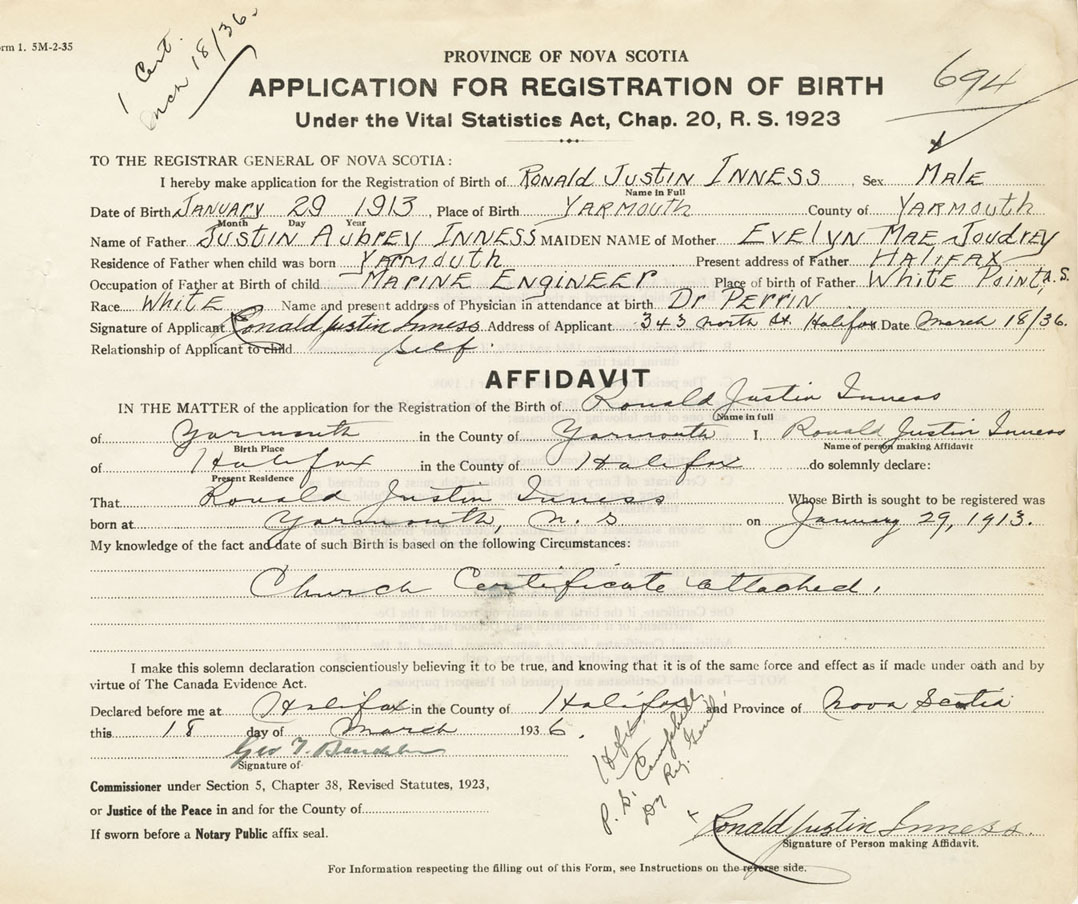 orm 1. 5M-2-35
1 Cert.
Mch 18/36.
PROVINCE OF NOVA SCOTIA
694
APPLICATION FOR REGISTRATION OF BIRTH
Under the Vital Statistics Act, Chap. 20, R. S. 1923
TO THE REGISTRAR GENERAL OF NOVA SCOTIA:
I hereby make application for the Registration of Birth of RONALD JUSTIN INNESS, Sex MALE
Name in Full
Date of Birth JANUARY 29 1913, Place of Birth YARMOUTH County of YARMOUTH
Month Day Year
Name of Father JUSTIN AUBREY INNESS MAIDEN NAME of Mother EVELYN MAE JOUDREY
Residence of Father when child was born YARMOUTH Present address of Father HALIFAX
Occupation of Father at Birth of child MARINE ENGINEER Place of birth of Father WHITE POINT, N.S.
Race WHITE Name and present address of Physician in attendance at birth DR PERRIN
Signature of Applicant Ronald Justin Inness Address of Applicant 343 North St. Halifax Date March 18/36.
Relationship of Applicant to child Self.
AFFIDAVIT
IN THE MATTER of the application for the Registration of the Birth of Ronald Justin Inness
Name in full
of Yarmouth in the County of Yarmouth I, Ronald Justin Inness
Birth Place Name of person making Affidavit
of Halifax in the County of Halifax do solemnly declare:
Present Residence
That Ronald Justin Inness Whose Birth is sought to be registered was
born at Yarmouth, N. S on January 29, 1913.
My knowledge of the fact and date of such Birth is based on the following Circumstances:
Church Certificate attached.
I make this solemn declaration conscientiously believing it to be true, and knowing that it is of the same force and effect as if made under oath and by
virtue of The Canada Evidence Act.
Declared before me at Halifax in the County of Halifax and Province of Nova Scotia
this 18 day of March 1936.
Geo T.
Signature of
P. S. Campbell
Dy Reg. Genl.
Commissioner under Section 5, Chapter 38, Revised Statutes, 1923,
or Justice of the Peace in and for the County of
If sworn before a Notary Public affix seal.
x Ronald Justin Inness.
Signature of Person making Affidavit.
For Information respecting the filling out of this Form, see Instructions on the reverse side.